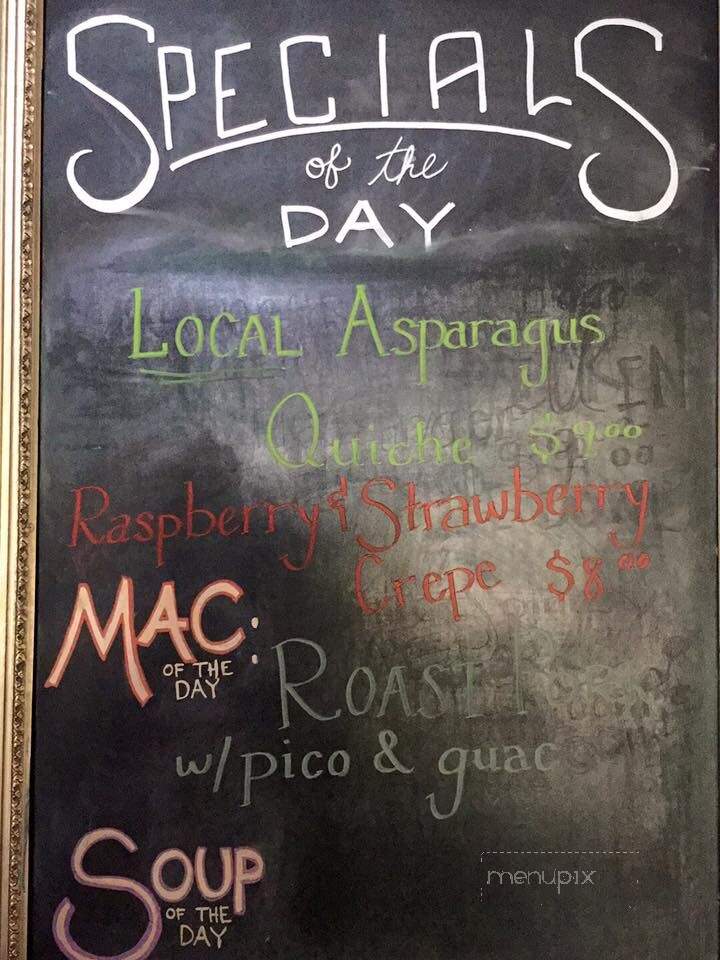 SPECIALS
of the
DAY
LOCAL Asparagus
Quiche $9.00
Raspberry & Strawberry
Crepe $8.00
MAC:
OF THE
DAY
ROAST PORK
w/pico & guac
SOUP
OF THE
DAY
menupix